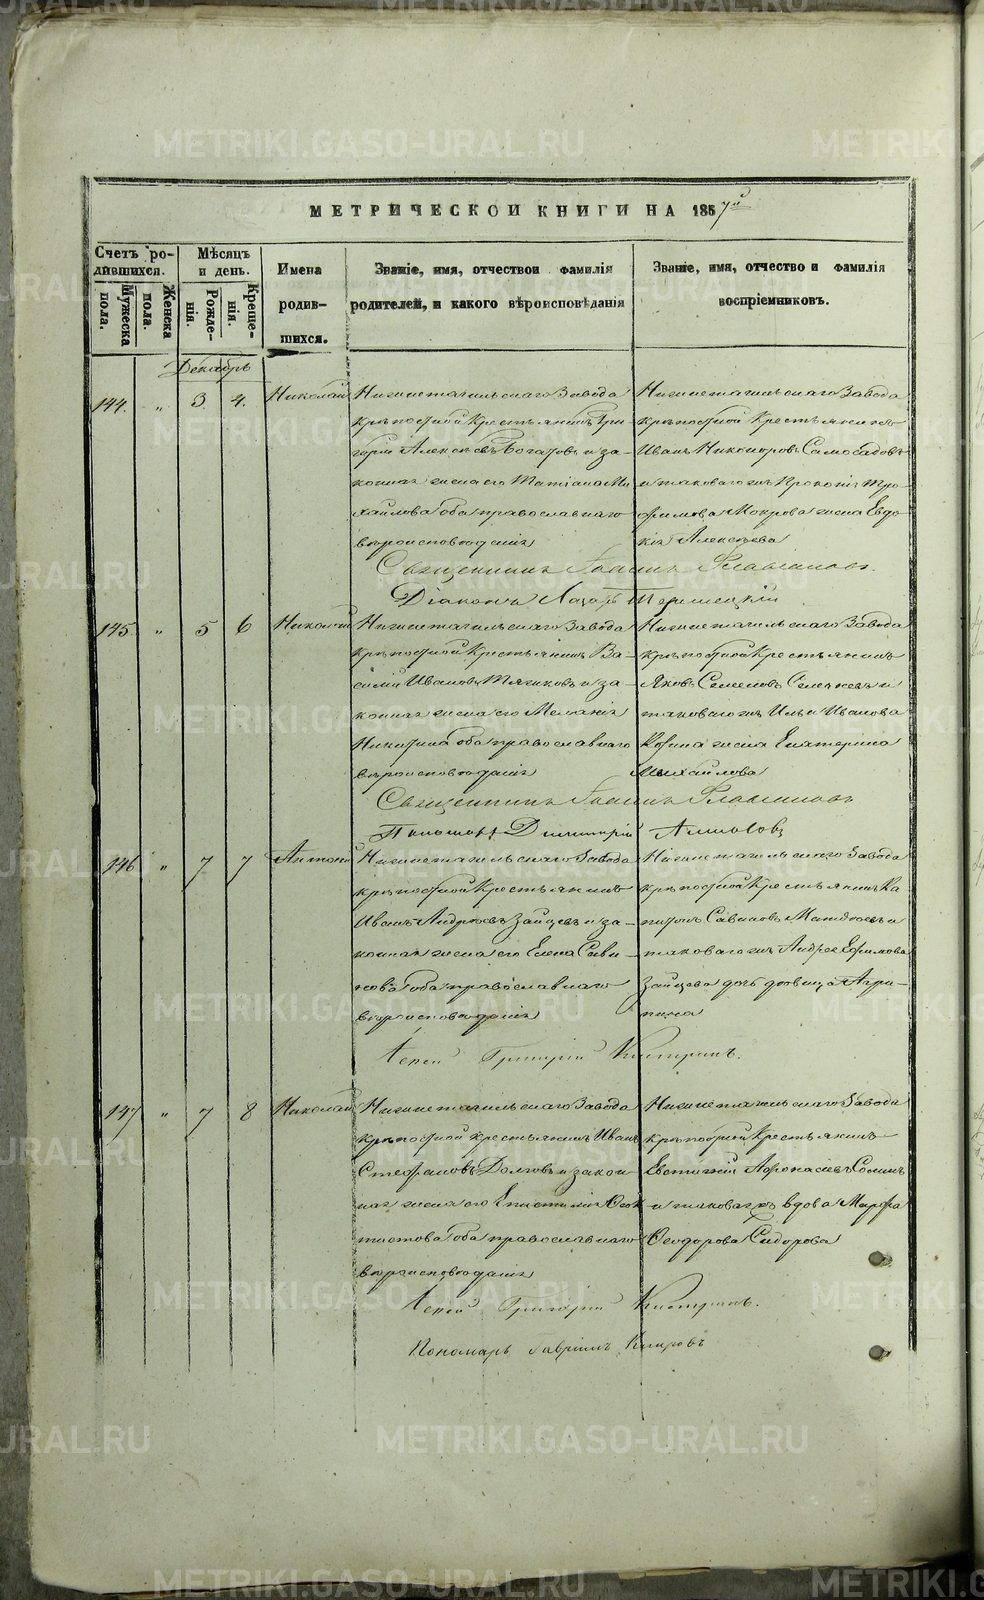 МЕТРИЧЕСКОЙ КНИГИ НА 1857й
Счетъ родившихся.
Мѣсяцъ и день.
Имена родившихся.
Званіе, имя, отчество и фамилія родителей, и какого вѣроисповѣданія
Званіе, имя, отчество и фамилія воспріемниковъ.
Мужеска пола.
Женска пола.
Рожденія.
Крещенія.
Декабрь
144. " 3. 4. Николай
Нижнетагильскаго Завода
крѣпостной Крестьянинъ Гри-
горій Алексѣевъ Богатовъ и за-
конная жена его Татіана Ми-
хаилова оба православнаго
вѣроисповѣданія
Нижнетагильскаго Завода
крѣпостной Крестьянинъ
Иванъ Никаноровъ Самосадовъ
и таковагожъ Прокопія Тро-
фимова Мокрова жена Евдо-
кія Алексѣева
Священникъ Іоаннъ Флавіановъ.
Діаконъ Лазарь
145. " 5 6 Николай
Нижнетагильскаго Завода
крѣпостной Крестьянинъ Ва-
силій Ивановъ Тягиновъ и за-
конная жена его Меланія
Никитина оба православнаго
вѣроисповѣданія
Нижнетагильскаго Завода
крѣпостной Крестьянинъ
Яковъ Семеновъ и
таковагожъ Ильи Иванова
жена Екатерина
Михаилова
Священникъ Іоаннъ Флавіановъ
Пономарь Димитрій
146 " 7 7 Антоній
Нижнетагильскаго Завода
крѣпостной Крестьянинъ
Иванъ Андреевъ Зайцевъ и за-
конная жена его Елена Сави-
нова оба православнаго
вѣроисповѣданія
Нижнетагильскаго Завода
крѣпостной Крестьянинъ Ка-
питонъ Савиновъ Матвѣевъ и
таковагожъ Андрея Ефимова
Зайцева дочь дѣвица Агри-
пина
Іерей Григорій
147 " 7 8 Николай
Нижнетагильскаго Завода
крѣпостной крестьянинъ Иванъ
Стефановъ Долговъ и закон-
ная жена его Епистимія Ѳеок-
тистова оба православнаго
вѣроисповѣданія
Нижнетагильскаго Завода
крѣпостной Крестьянинъ
Евтихій Афонасіевъ
и таковагожъ вдова Марфа
Ѳеодорова Сидорова
Іерей Григорій
Пономарь Гавріилъ
METRIKI.GASO-URAL.RU